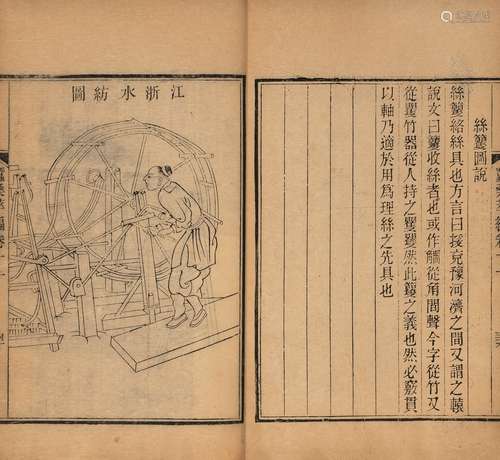 絲籰圖說
絲籰絡絲具也方言曰援兗豫河濟之間又謂之轅
說文曰籰收絲者也或作從角閒聲今字從竹又
從矍竹器從人持之矍矍然此籰之義也然必竅貫
以軸乃適於用爲理絲之先具也
江浙水紡圖
卷十一